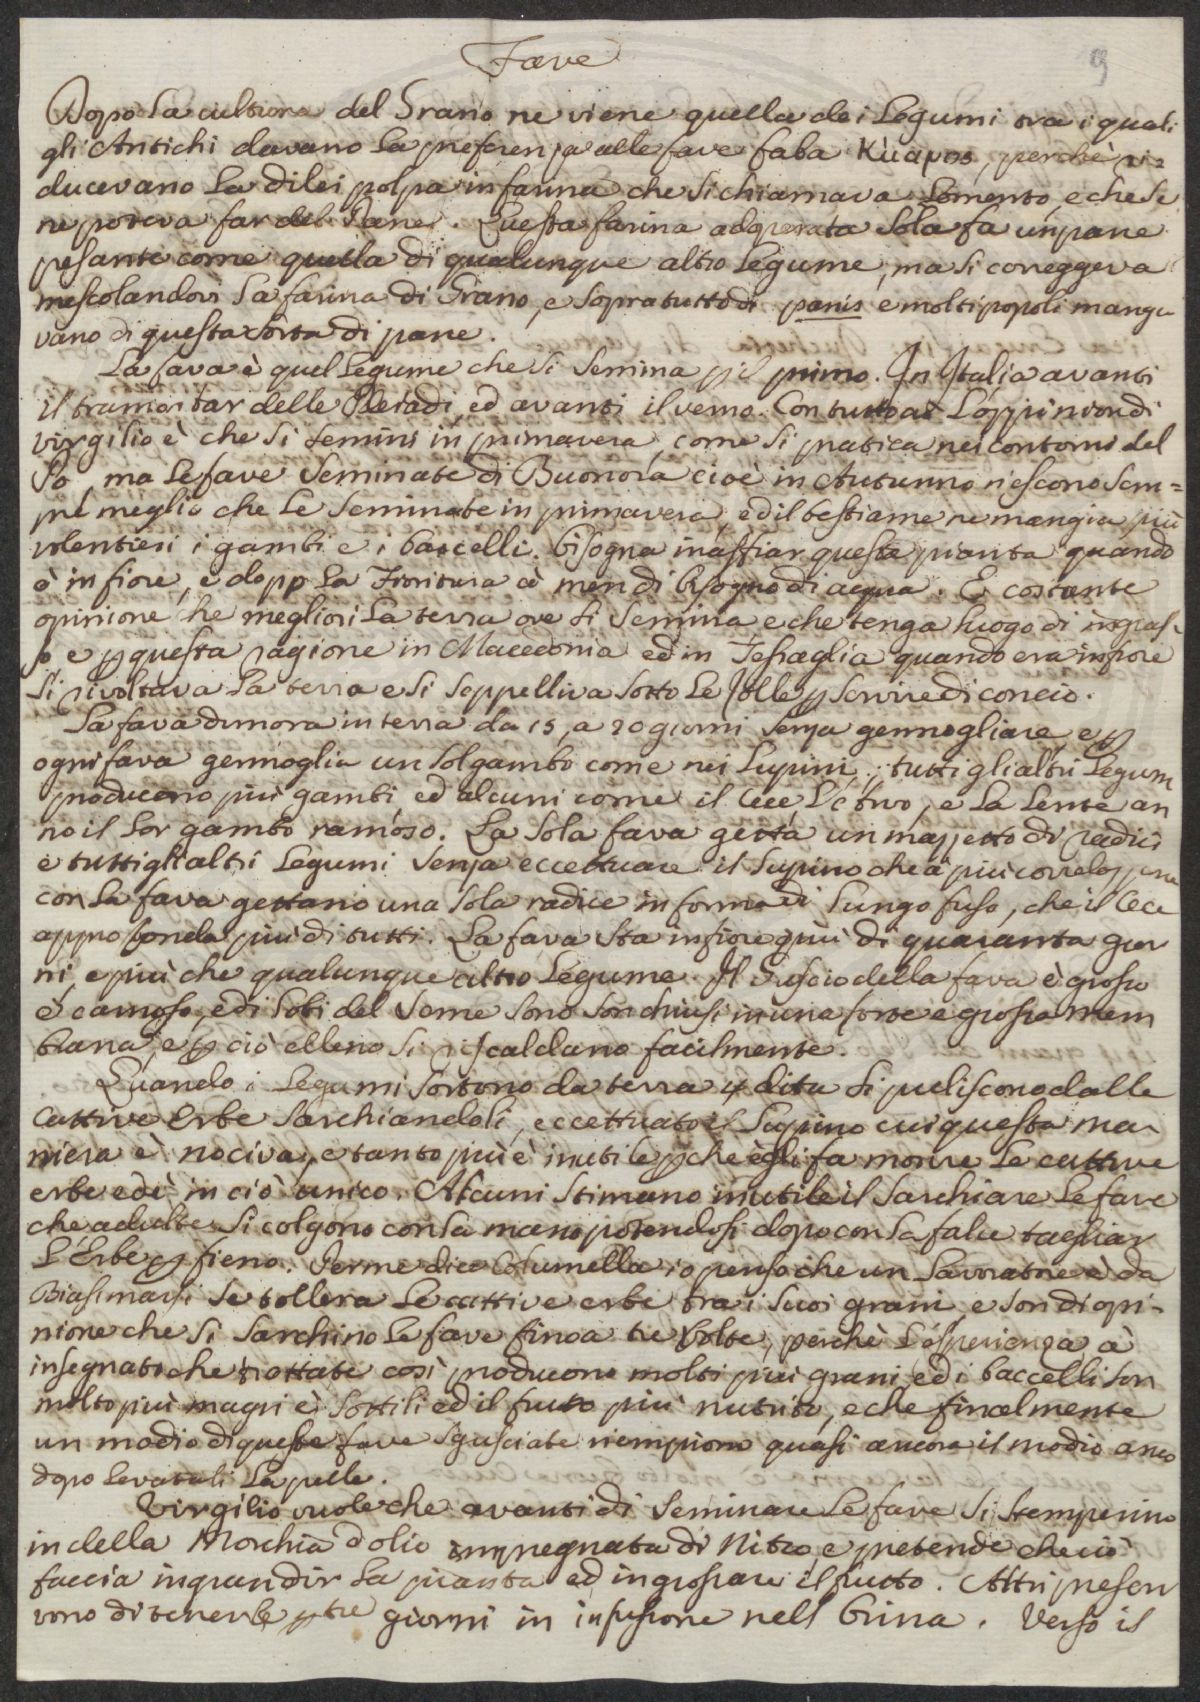 Fave
Dopo la cultura del Grano ne viene quella dei Legumi tra i quali
gli Antichi davano la preferenza alle fave faba Κύαμος, perchè ri=
ducevano la di lei polpa in farina che si chiamava Lomento, e che se
ne poteva far del Pane. Questa farina adoperata sola fa un pane
pesante come quella di qualunque altro legume, ma si correggeva
mescolandovi la farina di Grano, e sopratutto di panis e molti popoli mangia
vano di questa sorta di pane.
La fava è quel Legume che si semina p il primo. In Italia avanti
il tramontar delle Pleiadi, ed avanti il verno. Con tutto ciò l'oppinion di
virgilio è che si semini in primavera, come si pratica nei contorni del
Po, ma le fave seminate di Buonora cioè in Autunno riescono sem=
pre meglio che le seminate in primavera, ed il bestiame ne mangia più
volentieri i gambi e i baccelli. bisogna inaffiar questa pianta quando
è in fiore, e dopp la Fioritura à men di bisogno di acqua. E costante
opinione che megliori la terra ove si semina e che tenga luogo di ingras-
so e p questa ragione in Macedonia ed in Tessaglia quando era in fiore
si rivoltava la terra e si seppelliva sotto le zolle p servire di concio.
La fava dimora in terra da 15, a 20 giorni senza germogliare, e p
ogni fava germoglia un sol gambo come nei Lupini; tutti gli altri Legum
producono più gambi, ed alcuni come il Cece l'Ervo, e la Lente an
no il lor gambo ramoso. La sola fava getta un mazzetto di radici
e tutti gli altri Legumi senza eccettuare il Lupino che à più correlazione
con la fava gettano una sola radice in forma di lungo fuso, che il Cece
appro fonda più di tutti. La fava sta in fiore più di quaranta gior
ni, e più che qualunque altro Legume. Il Guscio della fava è grosso
è carnoso, ed i lobi del seme sono son chiusi in una forte e grossa mem
brana, e p ciò elleno si riscaldano facilmente.
Quando i Legumi sortono da terra 4 dita si puliscono dalle
Cattive Erbe sarchiandoli, eccettuato il Lupino cui questa ma-
niera è nociva, e tanto più è inutile p che egli fa morire le cattive
erbe ed è in ciò unico. Alcuni stimano inutile il sarchiare le fave
che adulte si colgono con la mano potendosi dopo con la falce tagliar
l'Erbe p fieno. Per me dice Columella io penso che un Lavoratore è da
Biasimarsi se tollera le cattive erbe tra i suoi grani, e son di opi-
nione che si sarchino le fave fino a tre volte, perchè l'esperienza à
insegnato che trattate così producono molti più grani, ed i baccelli son
molto più magri è sottili ed il frutto più nutrito, e che finalmente
un modio di queste fave sgusciate riempiono quasi ancora il modio anco
dopo levatali la pelle.
Virgilio vuole che avanti di seminare le fave si stemperino
in della Morchia d'olio impregnata di Nitro, e pretende che ciò
faccia ingrandir la pianta ed ingrossare il frutto. Altri prescri
vono di tenerle p tre giorni in infusione nell'Orina. Verso il